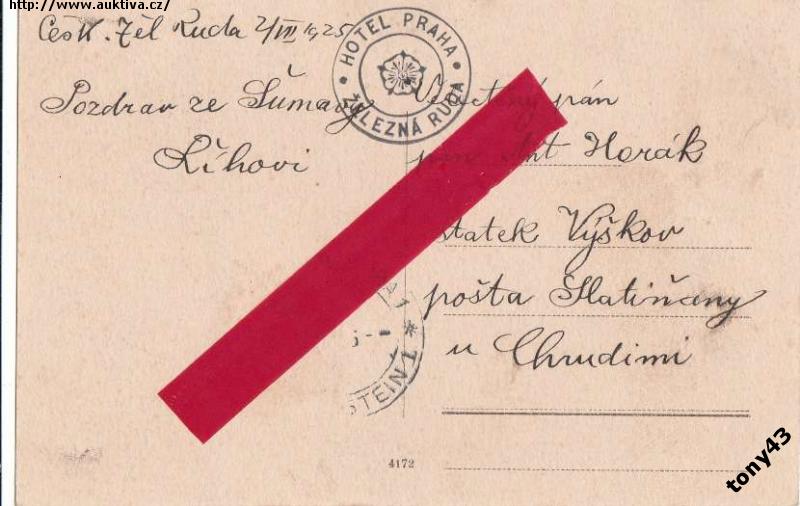 http://www.auktiva.cz/
Česk. Žel Ruda 2/VII 1925
HOTEL PRAHA
ŽELEZNÁ RUDA
Pozdrav ze Šumavy
Říhovi
pán
Ant Horák
statek Výškov
pošta Slatiňany
u Chrudimi
STEIN
4172
tony43